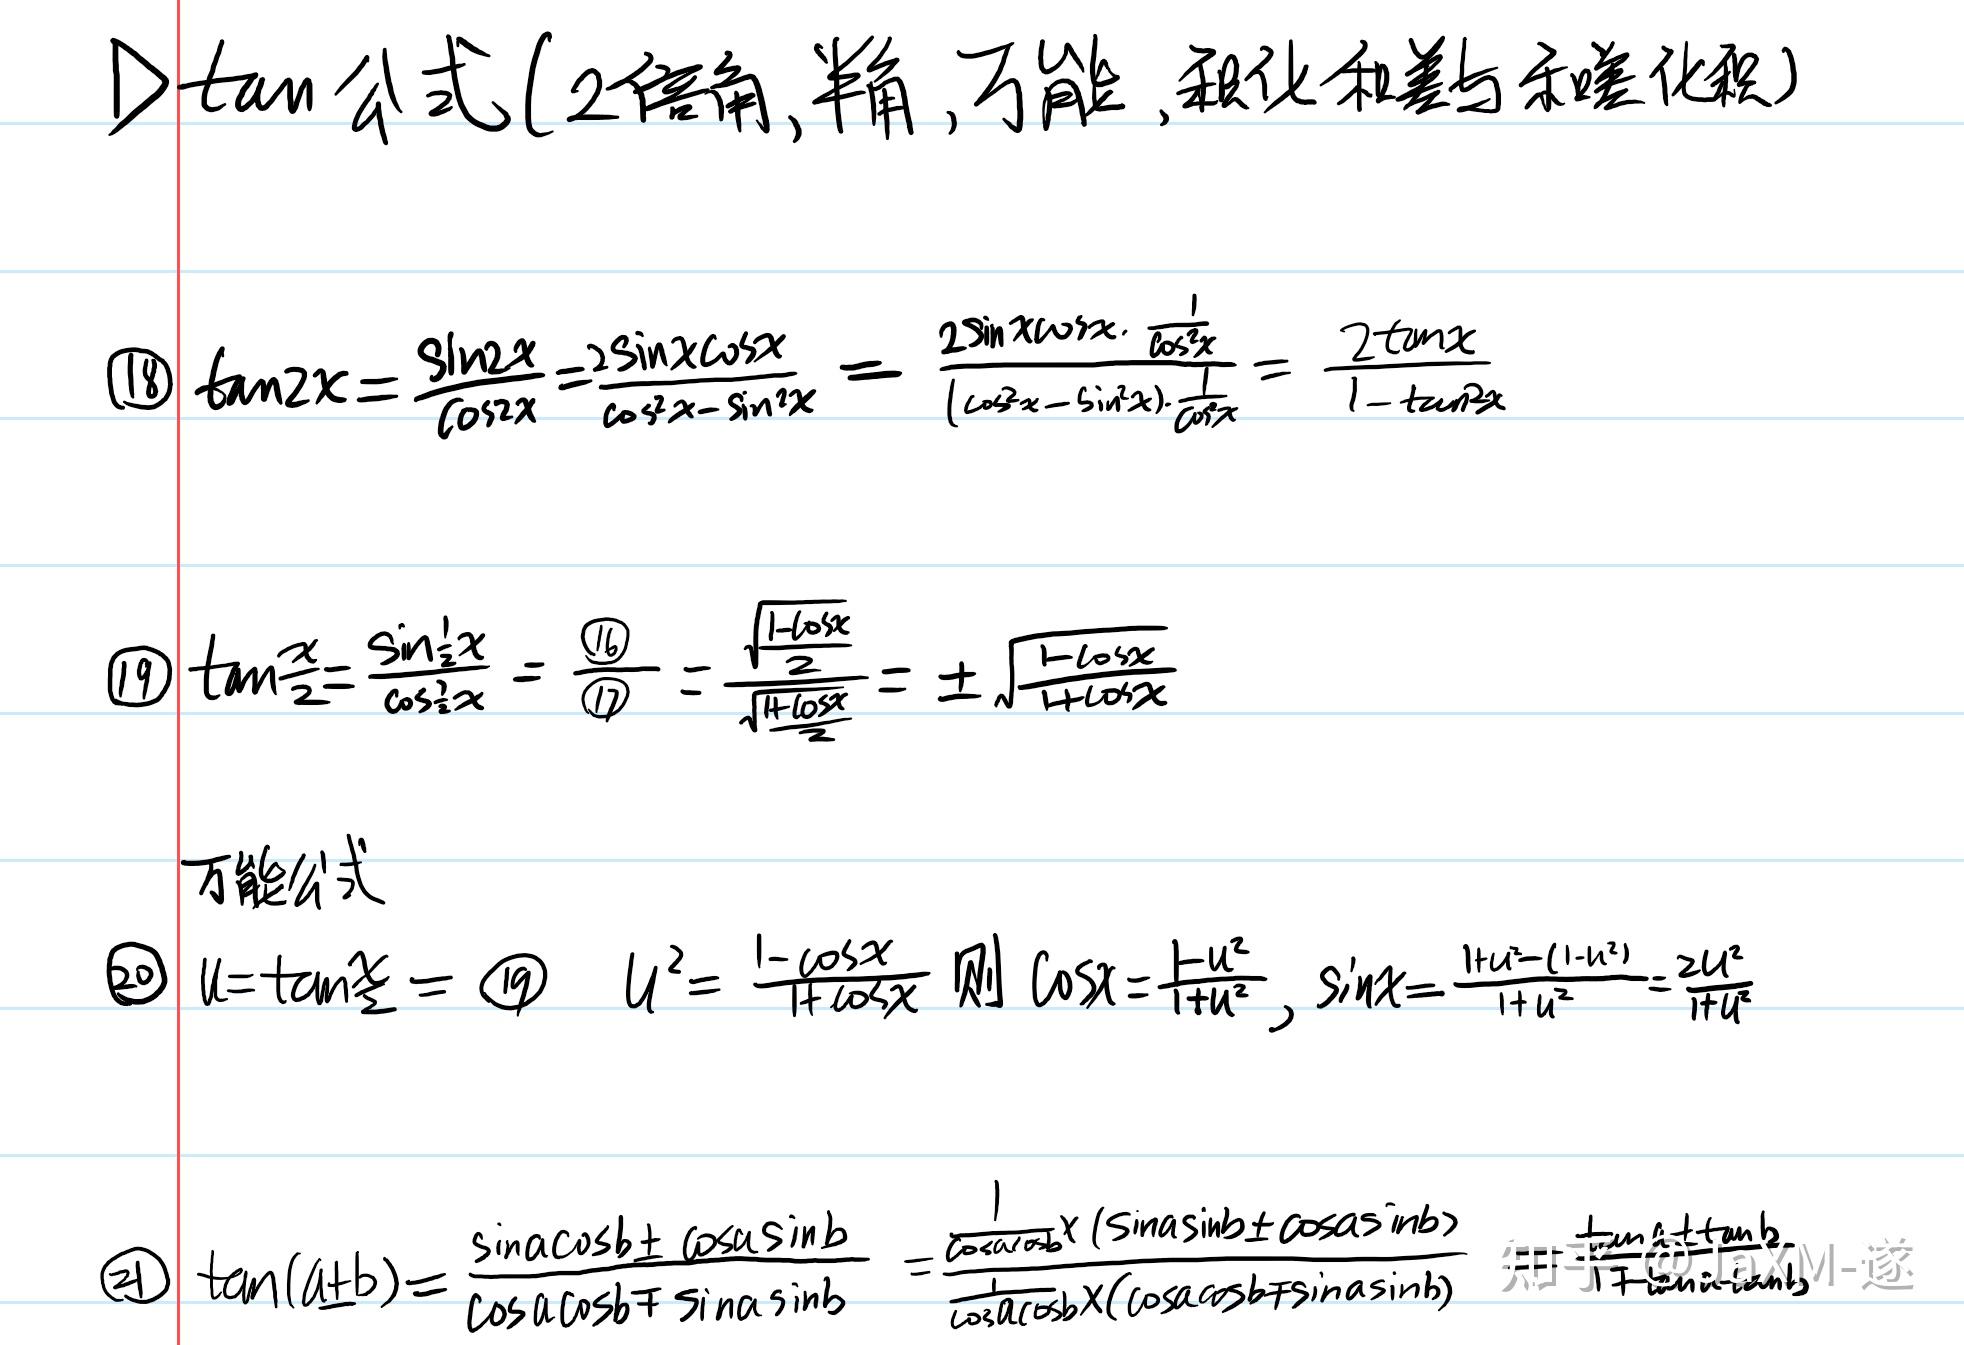 ▷ tan公式(2倍角,半角,万能,积化和差与和差化积)
⑱ tan2x = sin2x/cos2x = 2sinxcosx/(cos²x-sin²x) = (2sinxcosx·1/cos²x)/((cos²x-sin²x)·1/cos²x) = 2tanx/(1-tan²x)
⑲ tan x/2 = sin½x/cos½x = ⑯/⑰ = √((1-cosx)/2)/√((1+cosx)/2) = ±√((1-cosx)/(1+cosx))
万能公式
⑳ u=tan x/2 = ⑲ u² = (1-cosx)/(1+cosx) 则 cosx = (1-u²)/(1+u²), sinx = (1+u²-(1-u²))/(1+u²) = 2u²/(1+u²)
㉑ tan(a±b) = (sinacosb ± cosasinb)/(cosacosb ∓ sinasinb) = (1/(cosacosb) × (sinasinb ± cosasinb))/(1/(cosacosb) × (cosacosb ∓ sinasinb)) = (tana ± tanb)/(1 ∓ tana·tanb)
知乎 @JaXM-遂